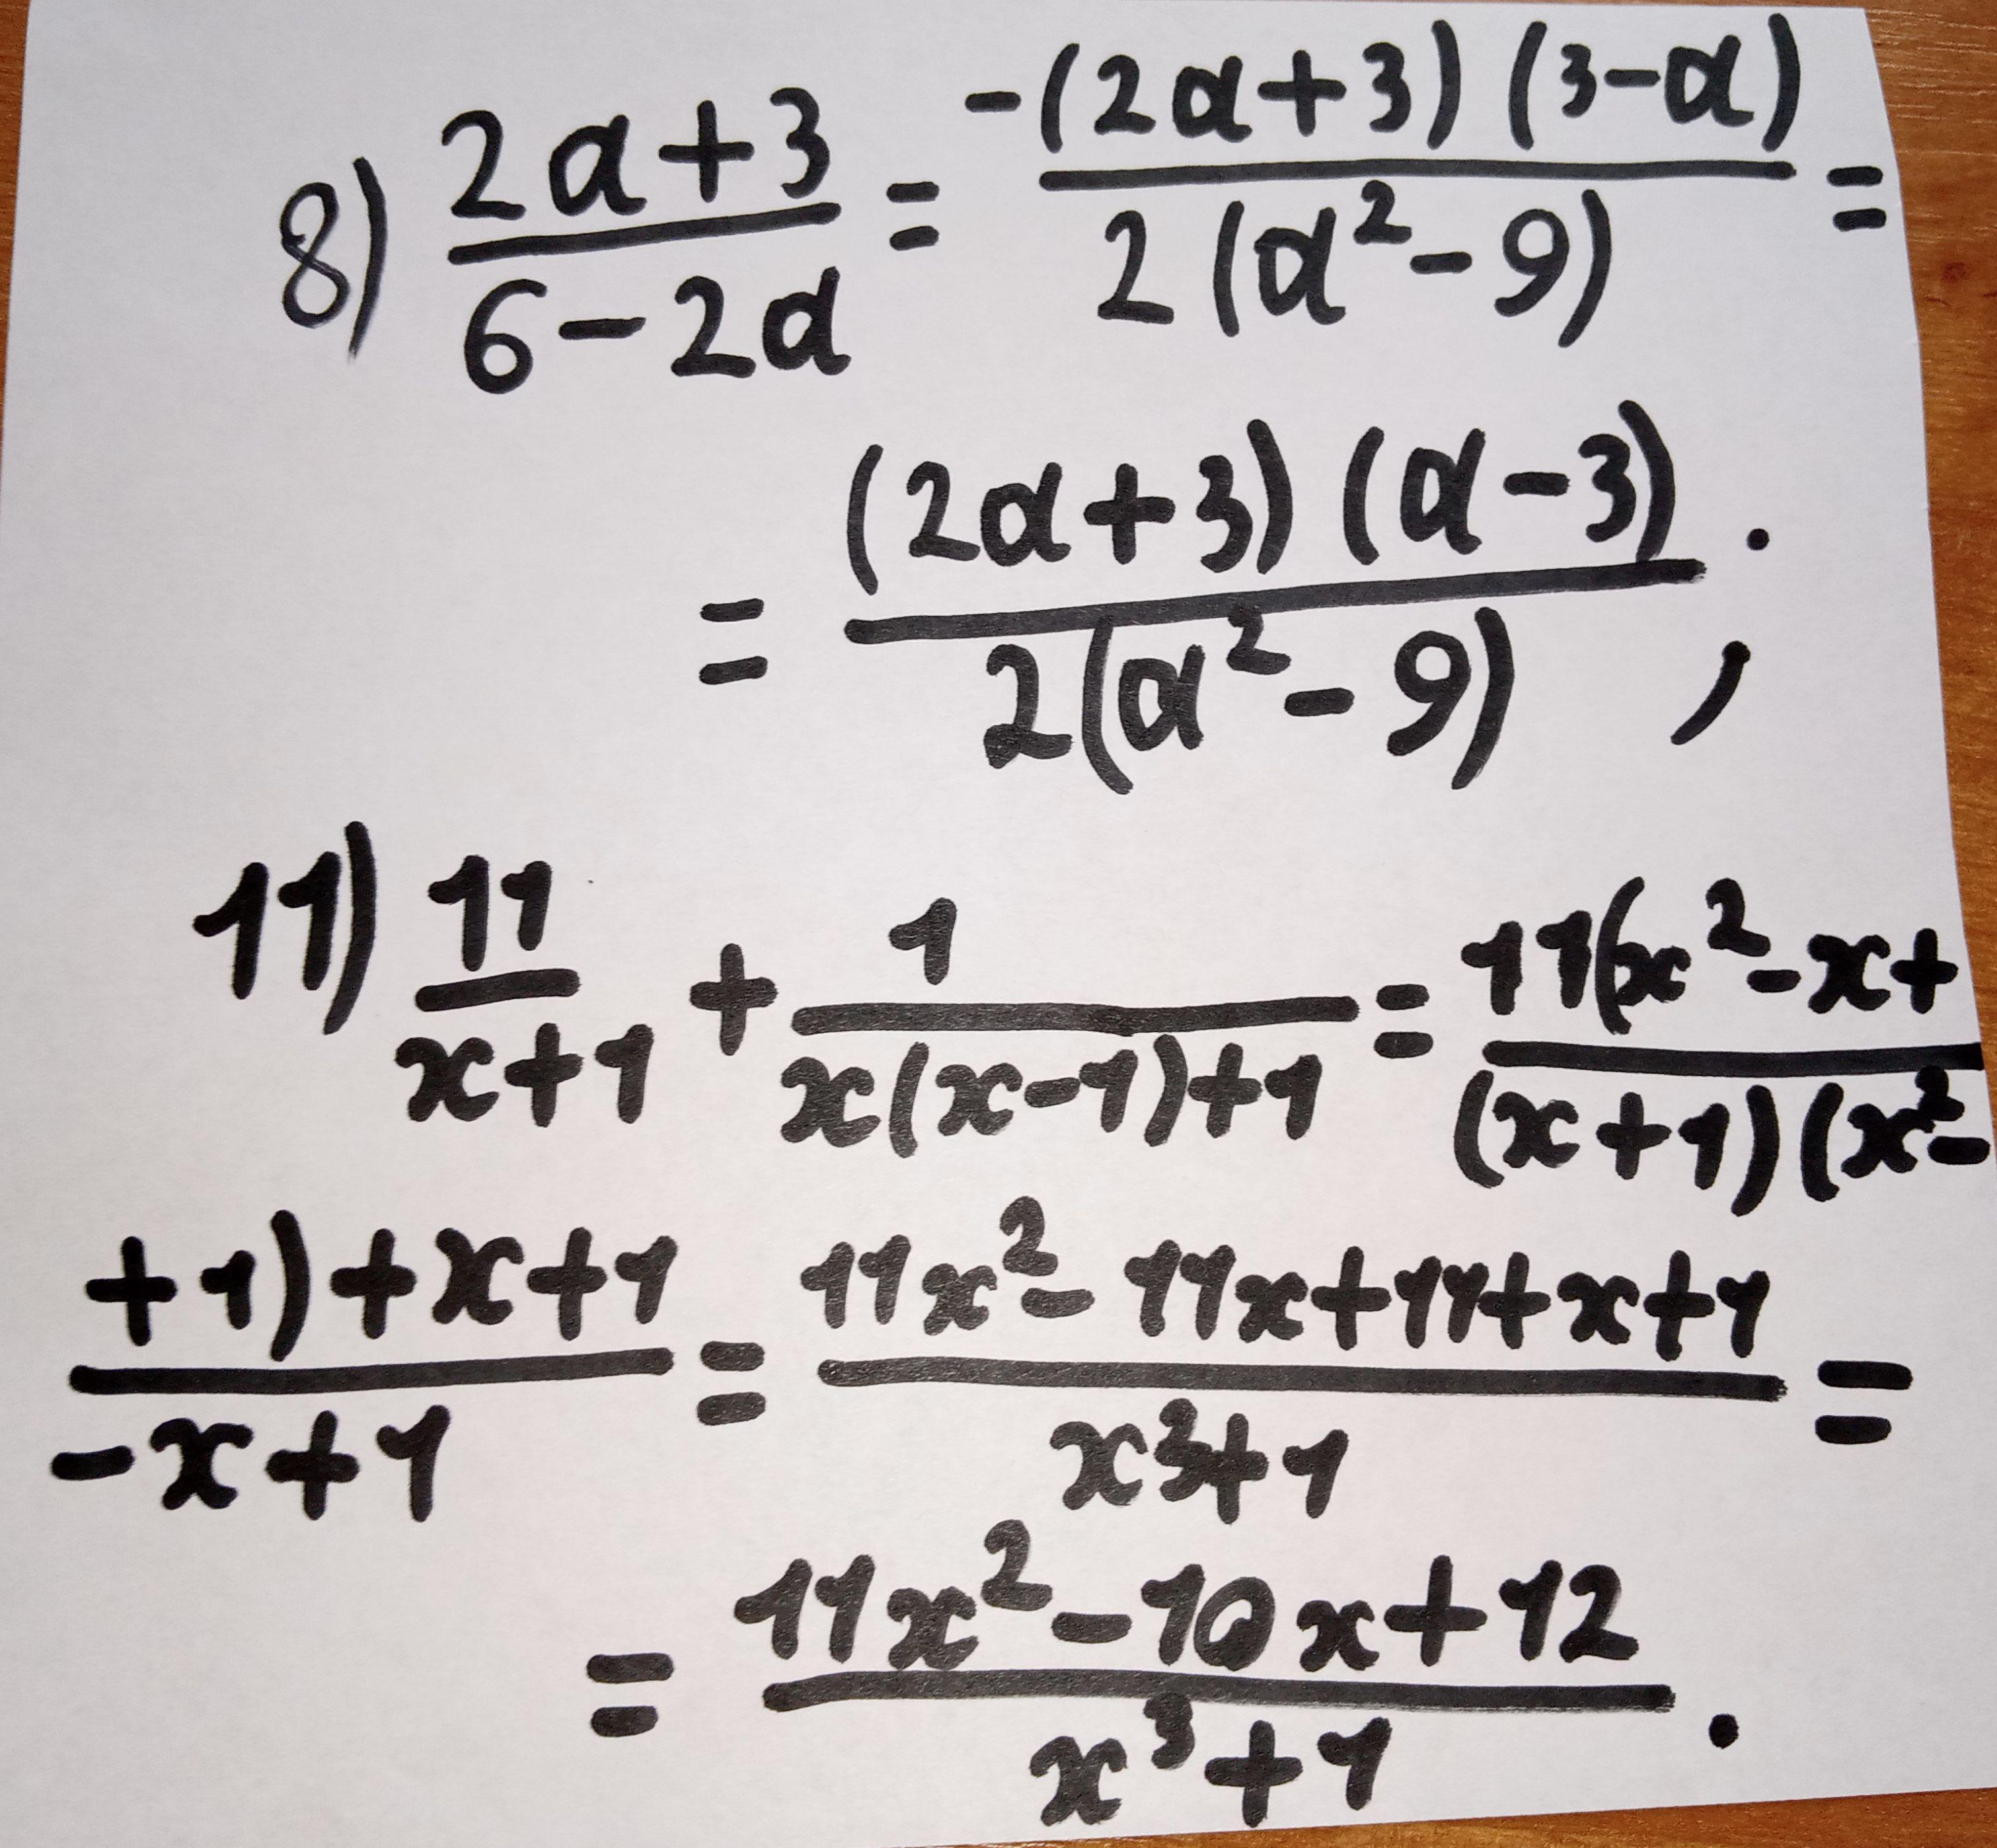 8) \frac{2a+3}{6-2a} = \frac{-(2a+3)(3-a)}{2(a²-9)} =
= \frac{(2a+3)(a-3)}{2(a²-9)} ;
11) \frac{11}{x+1} + \frac{1}{x(x-1)+1} = \frac{11(x²-x+}{(x+1)(x²-}
\frac{+1)+x+1}{-x+1} = \frac{11x²-11x+11+x+1}{x³+1} =
= \frac{11x²-10x+12}{x³+1} .